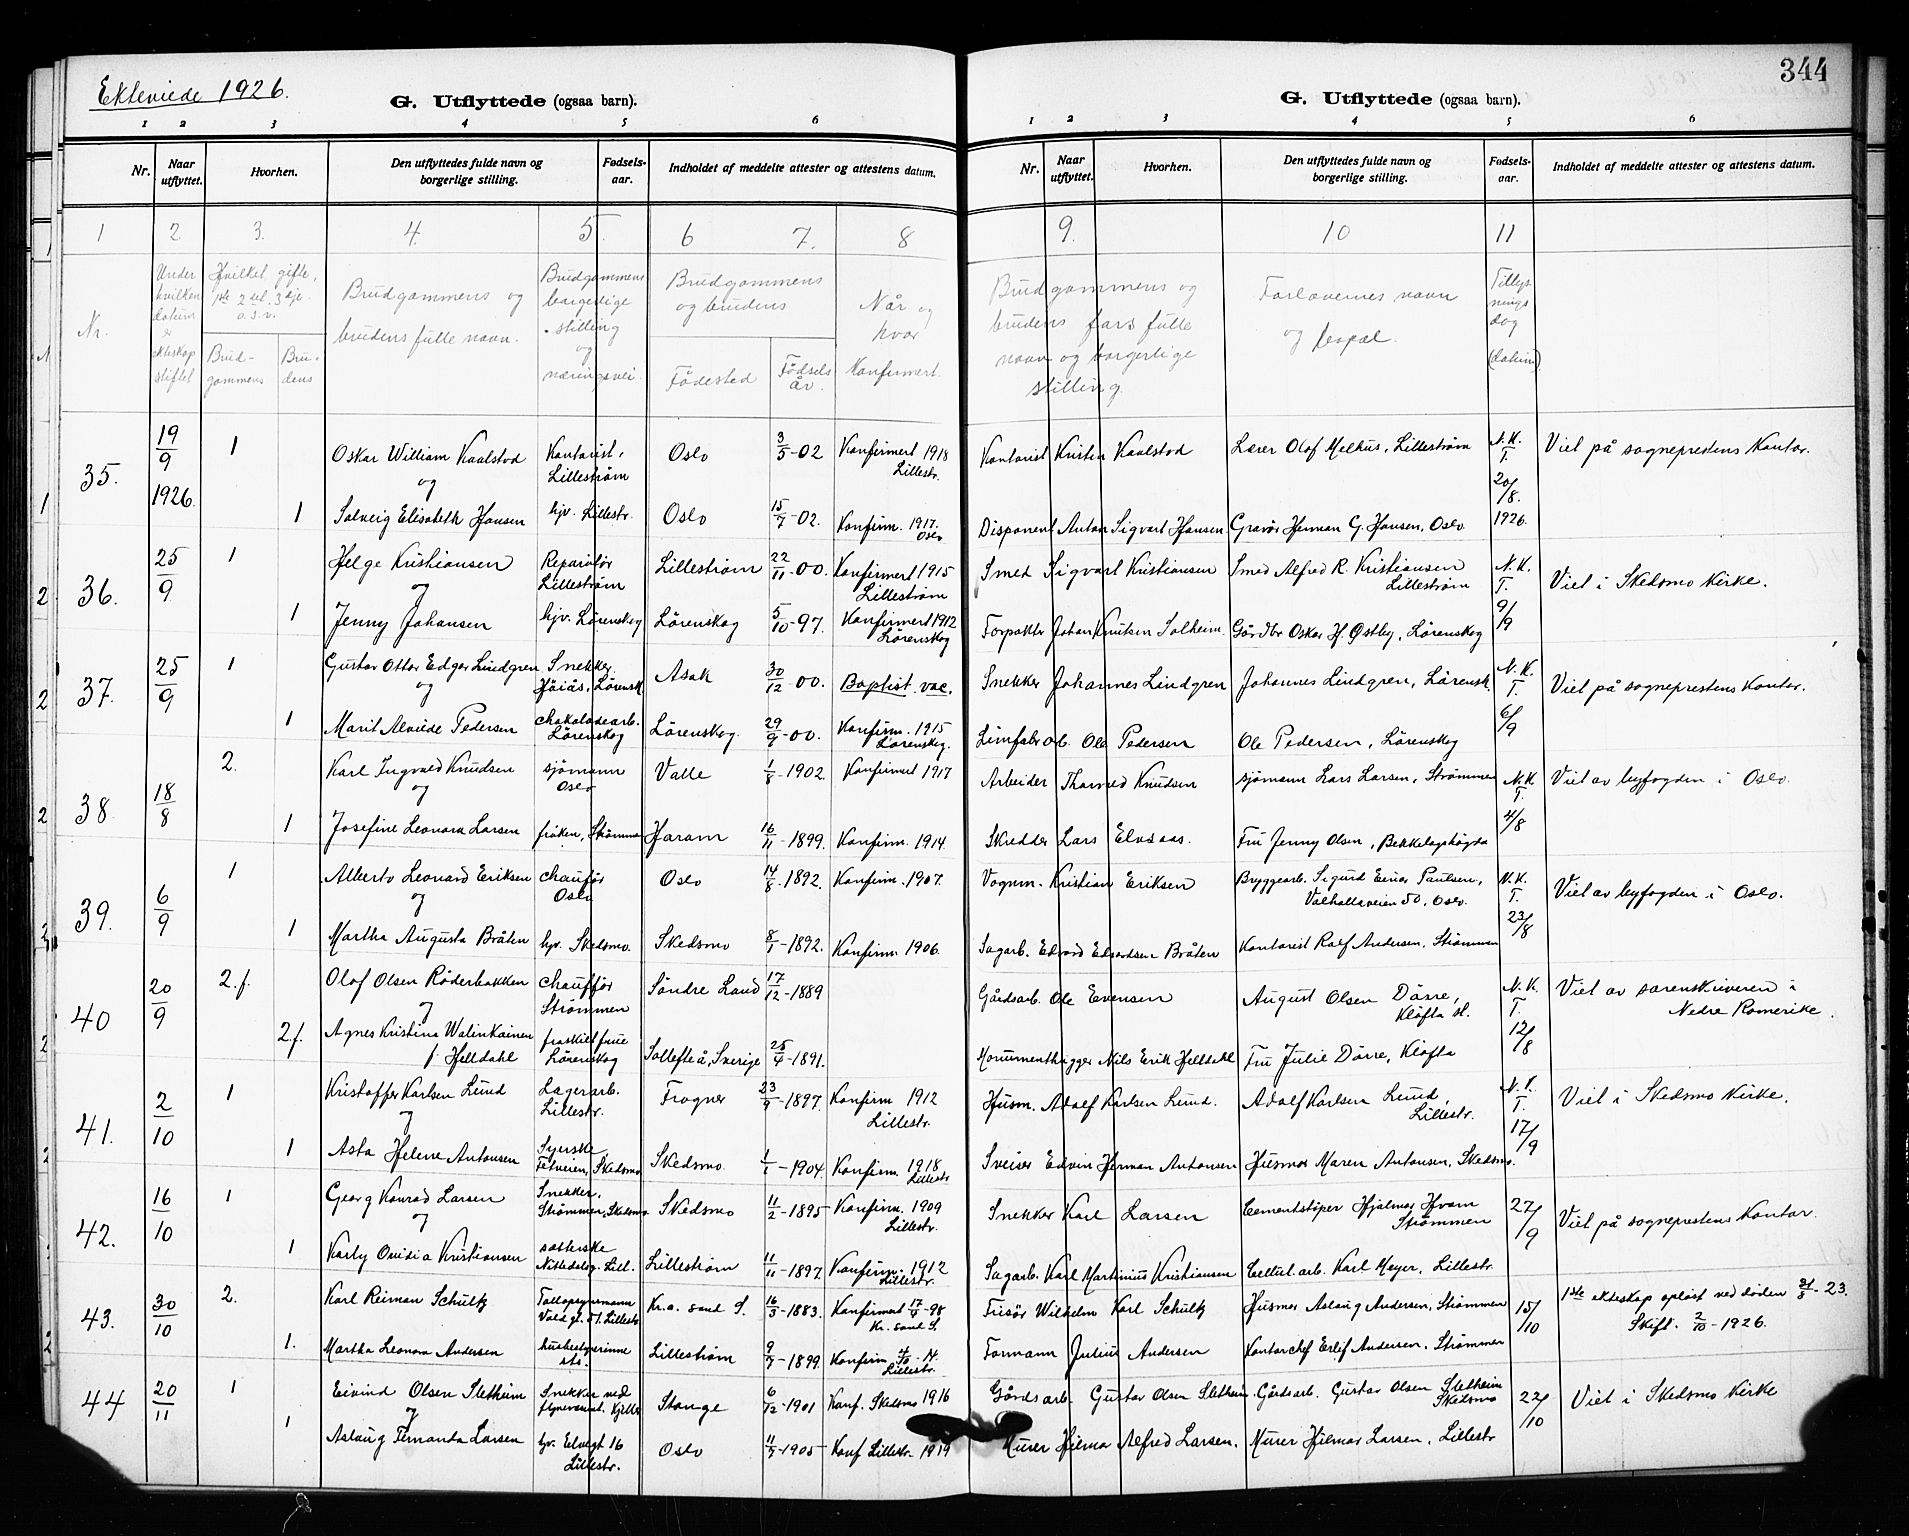 Ekteviede 1926.
G. Utflyttede (ogsaa barn).
1 2 3 4 5 6
Nr. Naar utflyttet. Hvorhen. Den utflyttedes fulde navn og borgerlige stilling. Fødsels-aar. Indholdet af meddelte attester og attestens datum.
1 2 3. 4. 5. 6 7. 8
Nr. Under hvilken datum er ekteskap stiftet
Hvilket gifte, 1ste 2det 3dje o.s.v.
Brud-gommens
Bru-dens
Brudgommens og brudens fulle navn.
Brudgommens borgerlige stilling og næringsvei.
Brudgommens og brudens
Fødested
Fødsels år.
Når og hvor Konfirmert.
35. 19/9 1926. 1 Oskar William Kaalstod og Kontorist, Lillestrøm Oslo 3/5-02 Konfirmert 1918 Lillestr.
1 Solveig Elisabeth Hansen hjv. Lillestr. Oslo 15/7-02. Konfirm. 1917. Oslo
36. 25/9 1 Helge Kristiansen og Reparatør Lillestrøm Lillestrøm 22/11-00. Konfirmert 1915 Lillestrøm
1 Jenny Johansen hjv. Lørenskog Lørenskog 5/10-97. Konfirmert 1912 Lørenskog
37. 25/9 1 Gustav Ottar Edgar Lindgren og Snekker. Høiås, Lørensk. Asak 30/12-00. Baptist. vac.
1 Marit Alvilde Pedersen chokoladearb. Lørenskog Lørenskog. 29/9-00. Konfirm. 1915 Lørenskog.
38. 18/8 2. Karl Ingvald Knudsen og sjømann Oslo Valle 1/8-1902. Konfirmert 1917
1 Josefine Leonora Larsen frøken, Strømmen Haram 16/11-1899. Konfirm. 1914.
39. 6/9 1 Alberto Leonard Eriksen og chauffør Oslo Oslo 14/8-1892. Konfirm. 1907.
1 Martha Augusta Bråten hjv. Skedsmo. Skedsmo 8/1-1892. Konfirm. 1906.
40 20/9 2.f. Olaf Olsen Røderbakken og chauffør Strømmen Søndre Land 17/12-1889
2f. Agnes Kristina Walinkainen f. Helldahl fraskilt frue Lørenskog Sollefteå, Sverige 25/4-1891.
41. 2/10 1 Kristoffer Karlsen Lund og Lagerarb. Lillestr. Frogner 23/9-1897. Konfirm 1912 Lillestr.
1 Asta Helene Antonsen Syerske, Tetveien, Skedsmo Skedsmo. 1/1-1904. Konfirm. 1918 Lillestr
42. 16/10 1 Georg Konrad Larsen og Snekker. Strømmen, Skedsmo Skedsmo 11/2-1895 Konfirm. 1909 Lillestr.
1 Karly Ovidia Kristiansen Nittedalsg. Lill. Lillestrøm 11/11-1897. Konfirm. 1912 Lillestr.
43. 30/10 2. Karl Reiman Schultz Lillestr Kr.a. sand S. 16/3-1883. Konfirmert 17/4-98 Kr. sand S.
1. Martha Leonora Andersen husbestyrerinne sts. Lillestrøm 9/7-1899. Konfirm 4/10-14. Lillestr.
44 20/11 1 Eivind Olsen Sletheim og Snekker ved flyvevesenet. Kjeller Stange 6/12-1901 Konf. Skedsmo 1916
1 Aslaug Fernanda Larsen hjv. Elvegt 16 Lillestr. Oslo 11/7-1905 Konf Lillestr. 1919
344
G. Utflyttede (ogsaa barn).
1 2 3 4 5 6
Nr. Naar utflyttet. Hvorhen. Den utflyttedes fulde navn og borgerlige stilling. Fødsels-aar. Indholdet af meddelte attester og attestens datum.
9. 10 11
Brudgommens og brudens fars fulle navn og borgerlige stilling.
Forlovernes navn og bopæl.
Tillysnings dag (datum)
Kontorist Kristen Kaalstod Lærer Olaf Melhus, Lillestrøm N.K.T. 20/8. 1926. Viet på sogneprestens Kontor.
Disponent Anton Sigvart Hansen Gravør Herman G. Hansen, Oslo
Smed Sigvart Kristiansen Smed Alfred R. Kristiansen Lillestrøm N.K.T. 9/9 Viet i Skedsmo Kirke.
Forpakter Johan Knutsen Solheim. Gårdbr Oskar H. Østby, Lørenskog
Snekker Johannes Lindgren Johannes Lindgren, Lørensk. N.K.T. 6/9 Viet på sogneprestens Kontor.
Limfabr arb. Ole Pedersen Ole Pedersen, Lørenskog
Arbeider Thorvald Knudsen sjømann Lars Larsen, Strømmen N.K.T. 4/8 Viet av byfogden i Oslo.
Skredder Lars Elvsaas. Fru Jenny Olsen, Bekkelagshøgda
Vognm. Kristian Eriksen Bryggearb. Sigurd Einar Paulsen, Valhallaveien 50, Oslo. N.K.T. 23/8 Viet av byfogden i Oslo.
Sagarb. Edvard Edvardsen Bråten Kontorist Ralf Andersen, Strømmen
Gårdsarb. Ole Evensen August Olsen Dørre, Kløfta st. N.K.T. 12/8 Viet av sorenskriveren i Nedre Romerike.
Monumenthugger Nils Erik Helldahl Fru Julie Dørre, Kløfta
Husm. Adolf Karlsen Lund. Adolf Karlsen Lund, Lillestr. N.K.T. 17/9 Viet i Skedsmo Kirke.
Sveiser Edvin Herman Antonsen Husmor Maren Antonsen, Skedsmo.
Snekker Karl Larsen Cementstøper Hjalmar Hvam Strømmen 27/9 Viet på sogneprestens Kontor.
Sagarb. Karl Martinius Kristiansen Cellul. arb. Karl Meyer, Lillestr.
Frisør Wilhelm Karl Schultz Husmor Aslaug Andersen, Strømmen 15/10 1ste ekteskap opløst ved døden 31/8-23. Skift. 2/10-1926.
Formann Julius Andersen Kontorchef Erlif Andersen, Strømmen
Gårdsarb. Gustav Olsen Sletheim Gårdsarb. Gustav Olsen Sletheim Skedsmo 22/10 Viet i Skedsmo Kirke
Murer Hilmar Alfred Larsen. Murer Hilmar Larsen, Lillestr